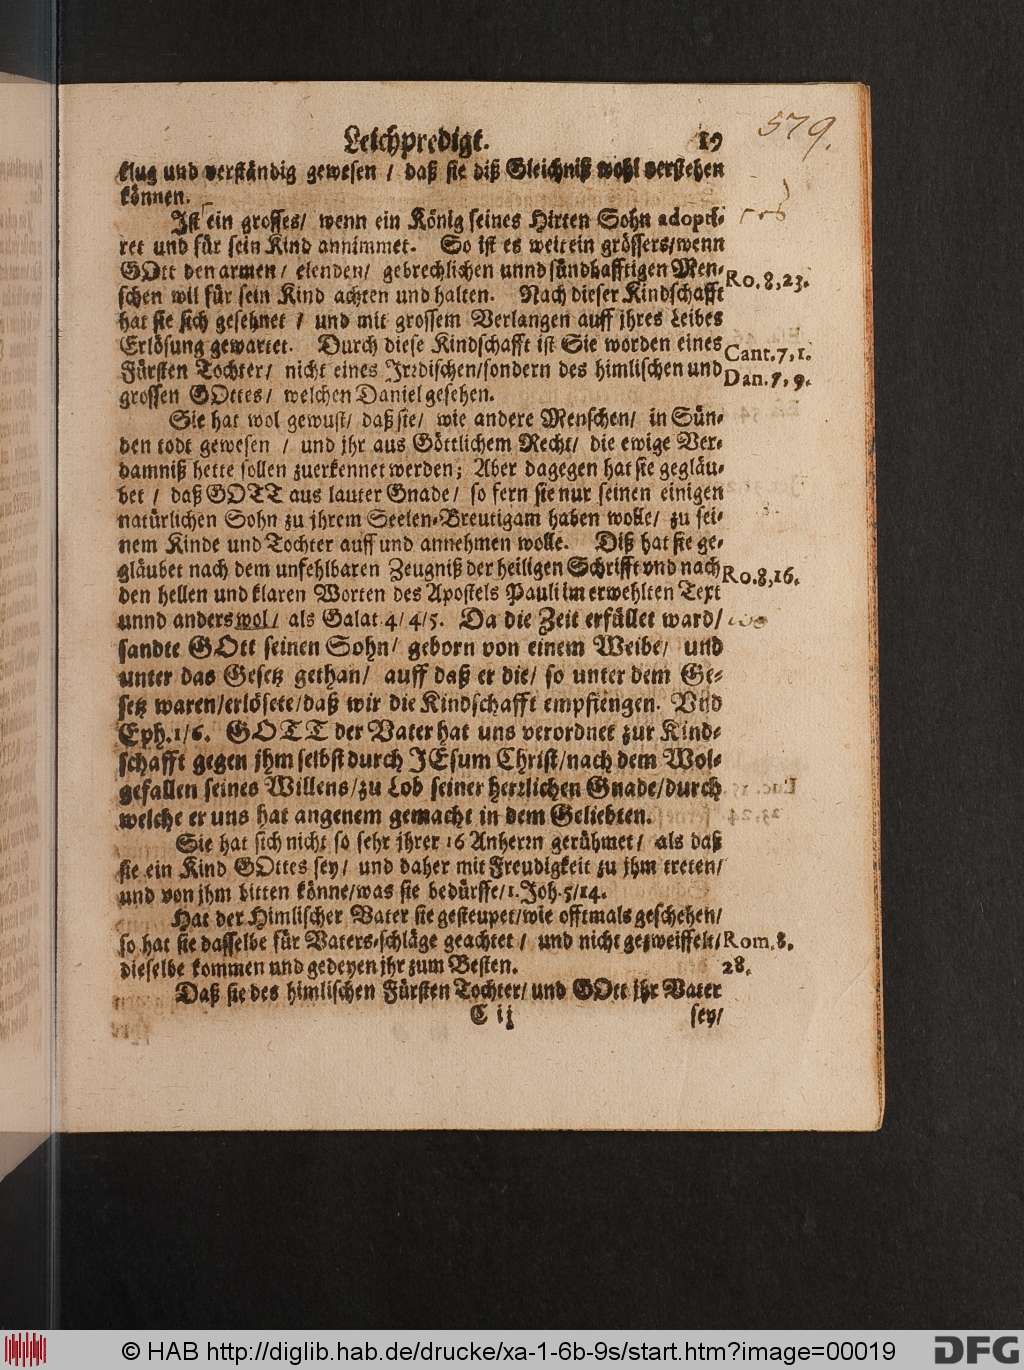 579.
Leichpredigt. 19
klug und verständig gewesen / daß sie diß Gleichniß wohl verstehen
können.
Ist ein grosses/ wenn ein König seines Hirten Sohn adopti-
ret und für sein Kind annimmet. So ist es weit ein grössers/wenn
GOtt den armen/ elenden/ gebrechlichen unnd sündhafftigen Men-
Ro. 8, 23.
schen wil für sein Kind achten und halten. Nach dieser Kindschafft
hat sie sich gesehnet / und mit grossem Verlangen auff jhres Leibes
Erlösung gewartet. Durch diese Kindschafft ist Sie worden eines
Cant. 7, 1.
Fürsten Tochter/ nicht eines Irrdischen/sondern des himlischen und
Dan. 7, 9.
grossen GOttes/ welchen Daniel gesehen.
Sie hat wol gewust/ daß sie/ wie andere Menschen/ in Sün-
den todt gewesen / und jhr aus Göttlichem Recht/ die ewige Ver-
damniß hette sollen zuerkennet werden; Aber dagegen hat sie gegläu-
bet / daß GOTT aus lauter Gnade/ so fern sie nur seinen einigen
natürlichen Sohn zu jhrem Seelen-Breutigam haben wolle/ zu sei-
nem Kinde und Tochter auff und annehmen wolle. Diß hat sie ge-
gläubet nach dem unfehlbaren Zeugniß der heiligen Schrifft vnd nach
Ro. 8, 16.
den hellen und klaren Worten des Apostels Pauli im erwehlten Text
unnd anderswol/ als Galat. 4/ 4/5. Da die Zeit erfüllet ward/
sandte GOtt seinen Sohn/ geborn von einem Weibe/ und
unter das Gesetz gethan/ auff daß er die/ so unter dem Ge-
setz waren/erlösete/daß wir die Kindschafft empfiengen. Und
Eph. 1/6. GOTT der Vater hat uns verordnet zur Kind-
schafft gegen jhm selbst durch JEsum Christ/nach dem Wol-
gefallen seines Willens/zu Lob seiner herrlichen Gnade/durch
welche er uns hat angenem gemacht in dem Geliebten.
Sie hat sich nicht so sehr jhrer 16 Anherrn gerühmet/ als daß
sie ein Kind GOttes sey/ und daher mit Freudigkeit zu jhm treten/
und von jhm bitten könne/was sie bedürffe/1. Joh. 5/14.
Hat der Himlischer Vater sie gesteupet/wie offtmals geschehen/
so hat sie dasselbe für Vaters-schläge geachtet / und nicht gezweiffelt/
Rom. 8.
28.
dieselbe kommen und gedeyen jhr zum Besten.
Daß sie des himlischen Fürsten Tochter/ und GOtt jhr Vater
C ij sey/
© HAB http://diglib.hab.de/drucke/xa-1-6b-9s/start.htm?image=00019
DFG